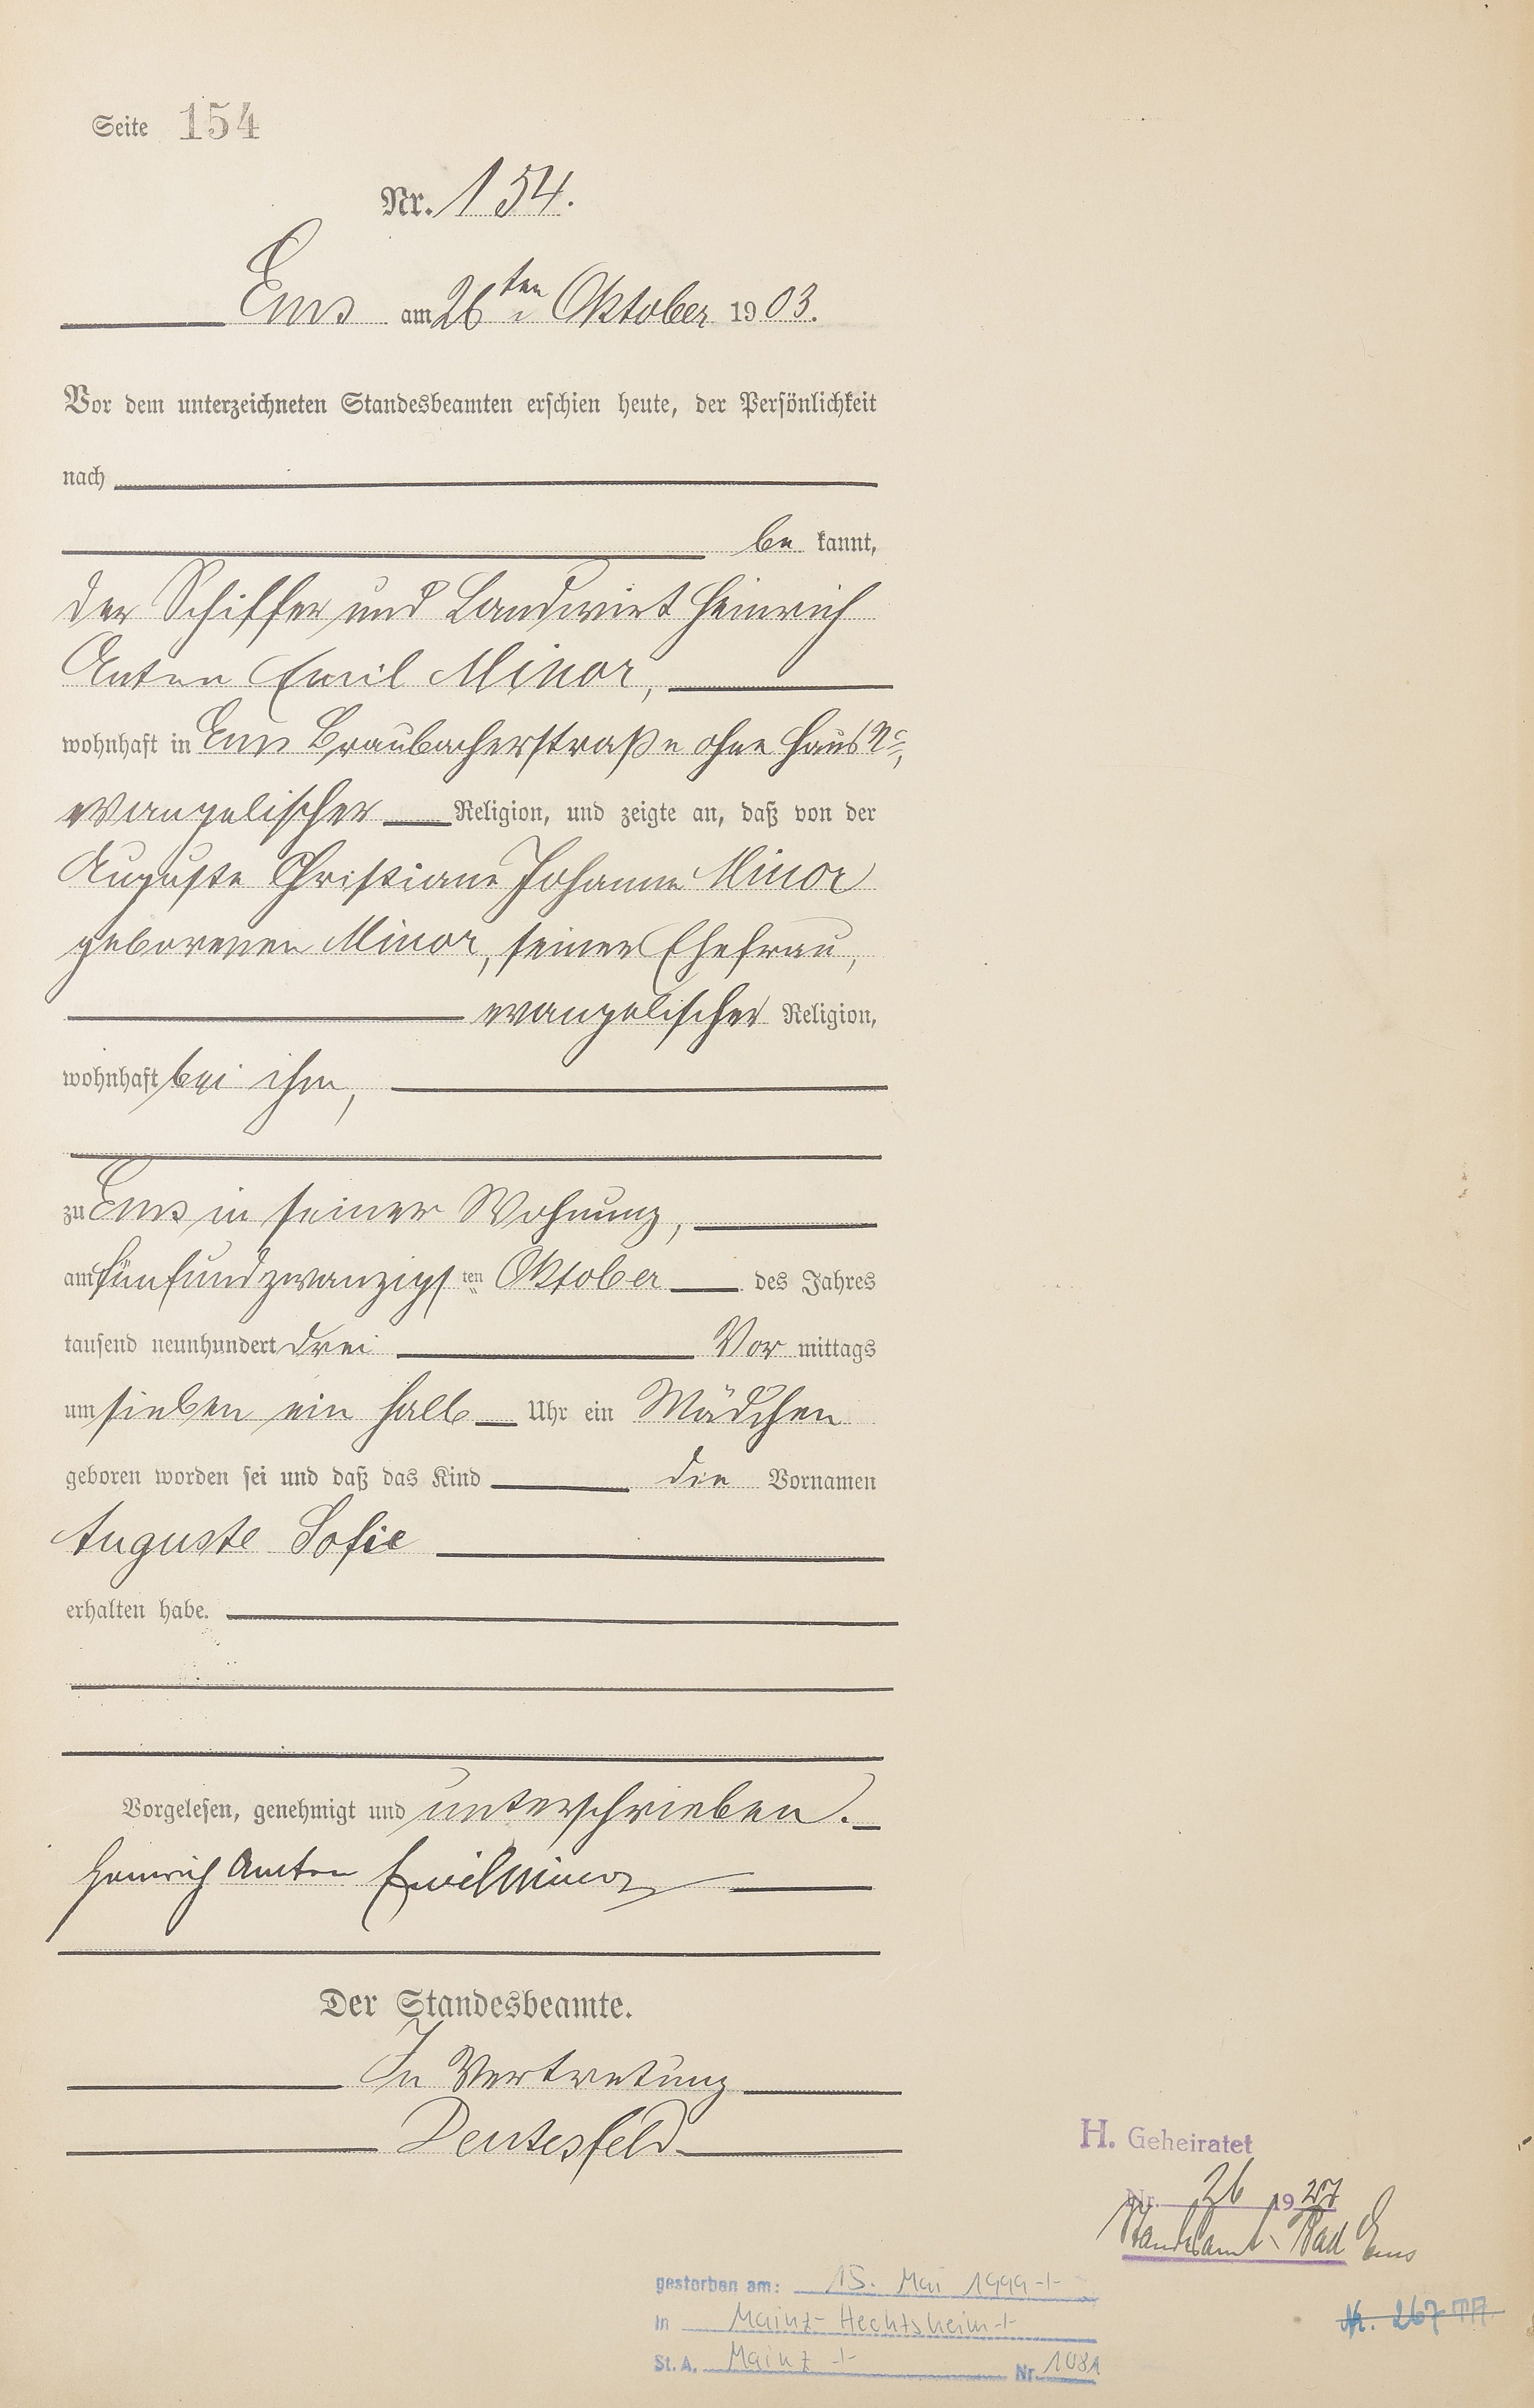 Seite 154
Nr. 154.
Ems am 26ten Oktober 1903.
Vor dem unterzeichneten Standesbeamten erschien heute, der Persönlichkeit
nach
be kannt,
der Schiffer und Landwirt Heinrich
Anton Emil Minor,
wohnhaft in Ems Braubacherstraße ohne Haus No,
evangelischer Religion, und zeigte an, daß von der
Auguste Christiane Johanne Minor
geborenen Minor, seiner Ehefrau,
evangelischer Religion,
wohnhaft bei ihm,
zu Ems in seiner Wohnung,
am fünfundzwanzigsten Oktober des Jahres
tausend neunhundert drei Vor mittags
um sieben ein halb Uhr ein Mädchen
geboren worden sei und daß das Kind die Vornamen
Auguste Sofie
erhalten habe.
Vorgelesen, genehmigt und unterschrieben.
Heinrich Anton Emil Minor
Der Standesbeamte.
In Vertretung
Deutesfeld
H. Geheiratet
Nr. 26 1927
Standesamt Bad Ems
gestorben am: 15. Mai 1999
in Mainz-Hechtsheim
St. A. Mainz Nr. 1081
Nr. 267 TA